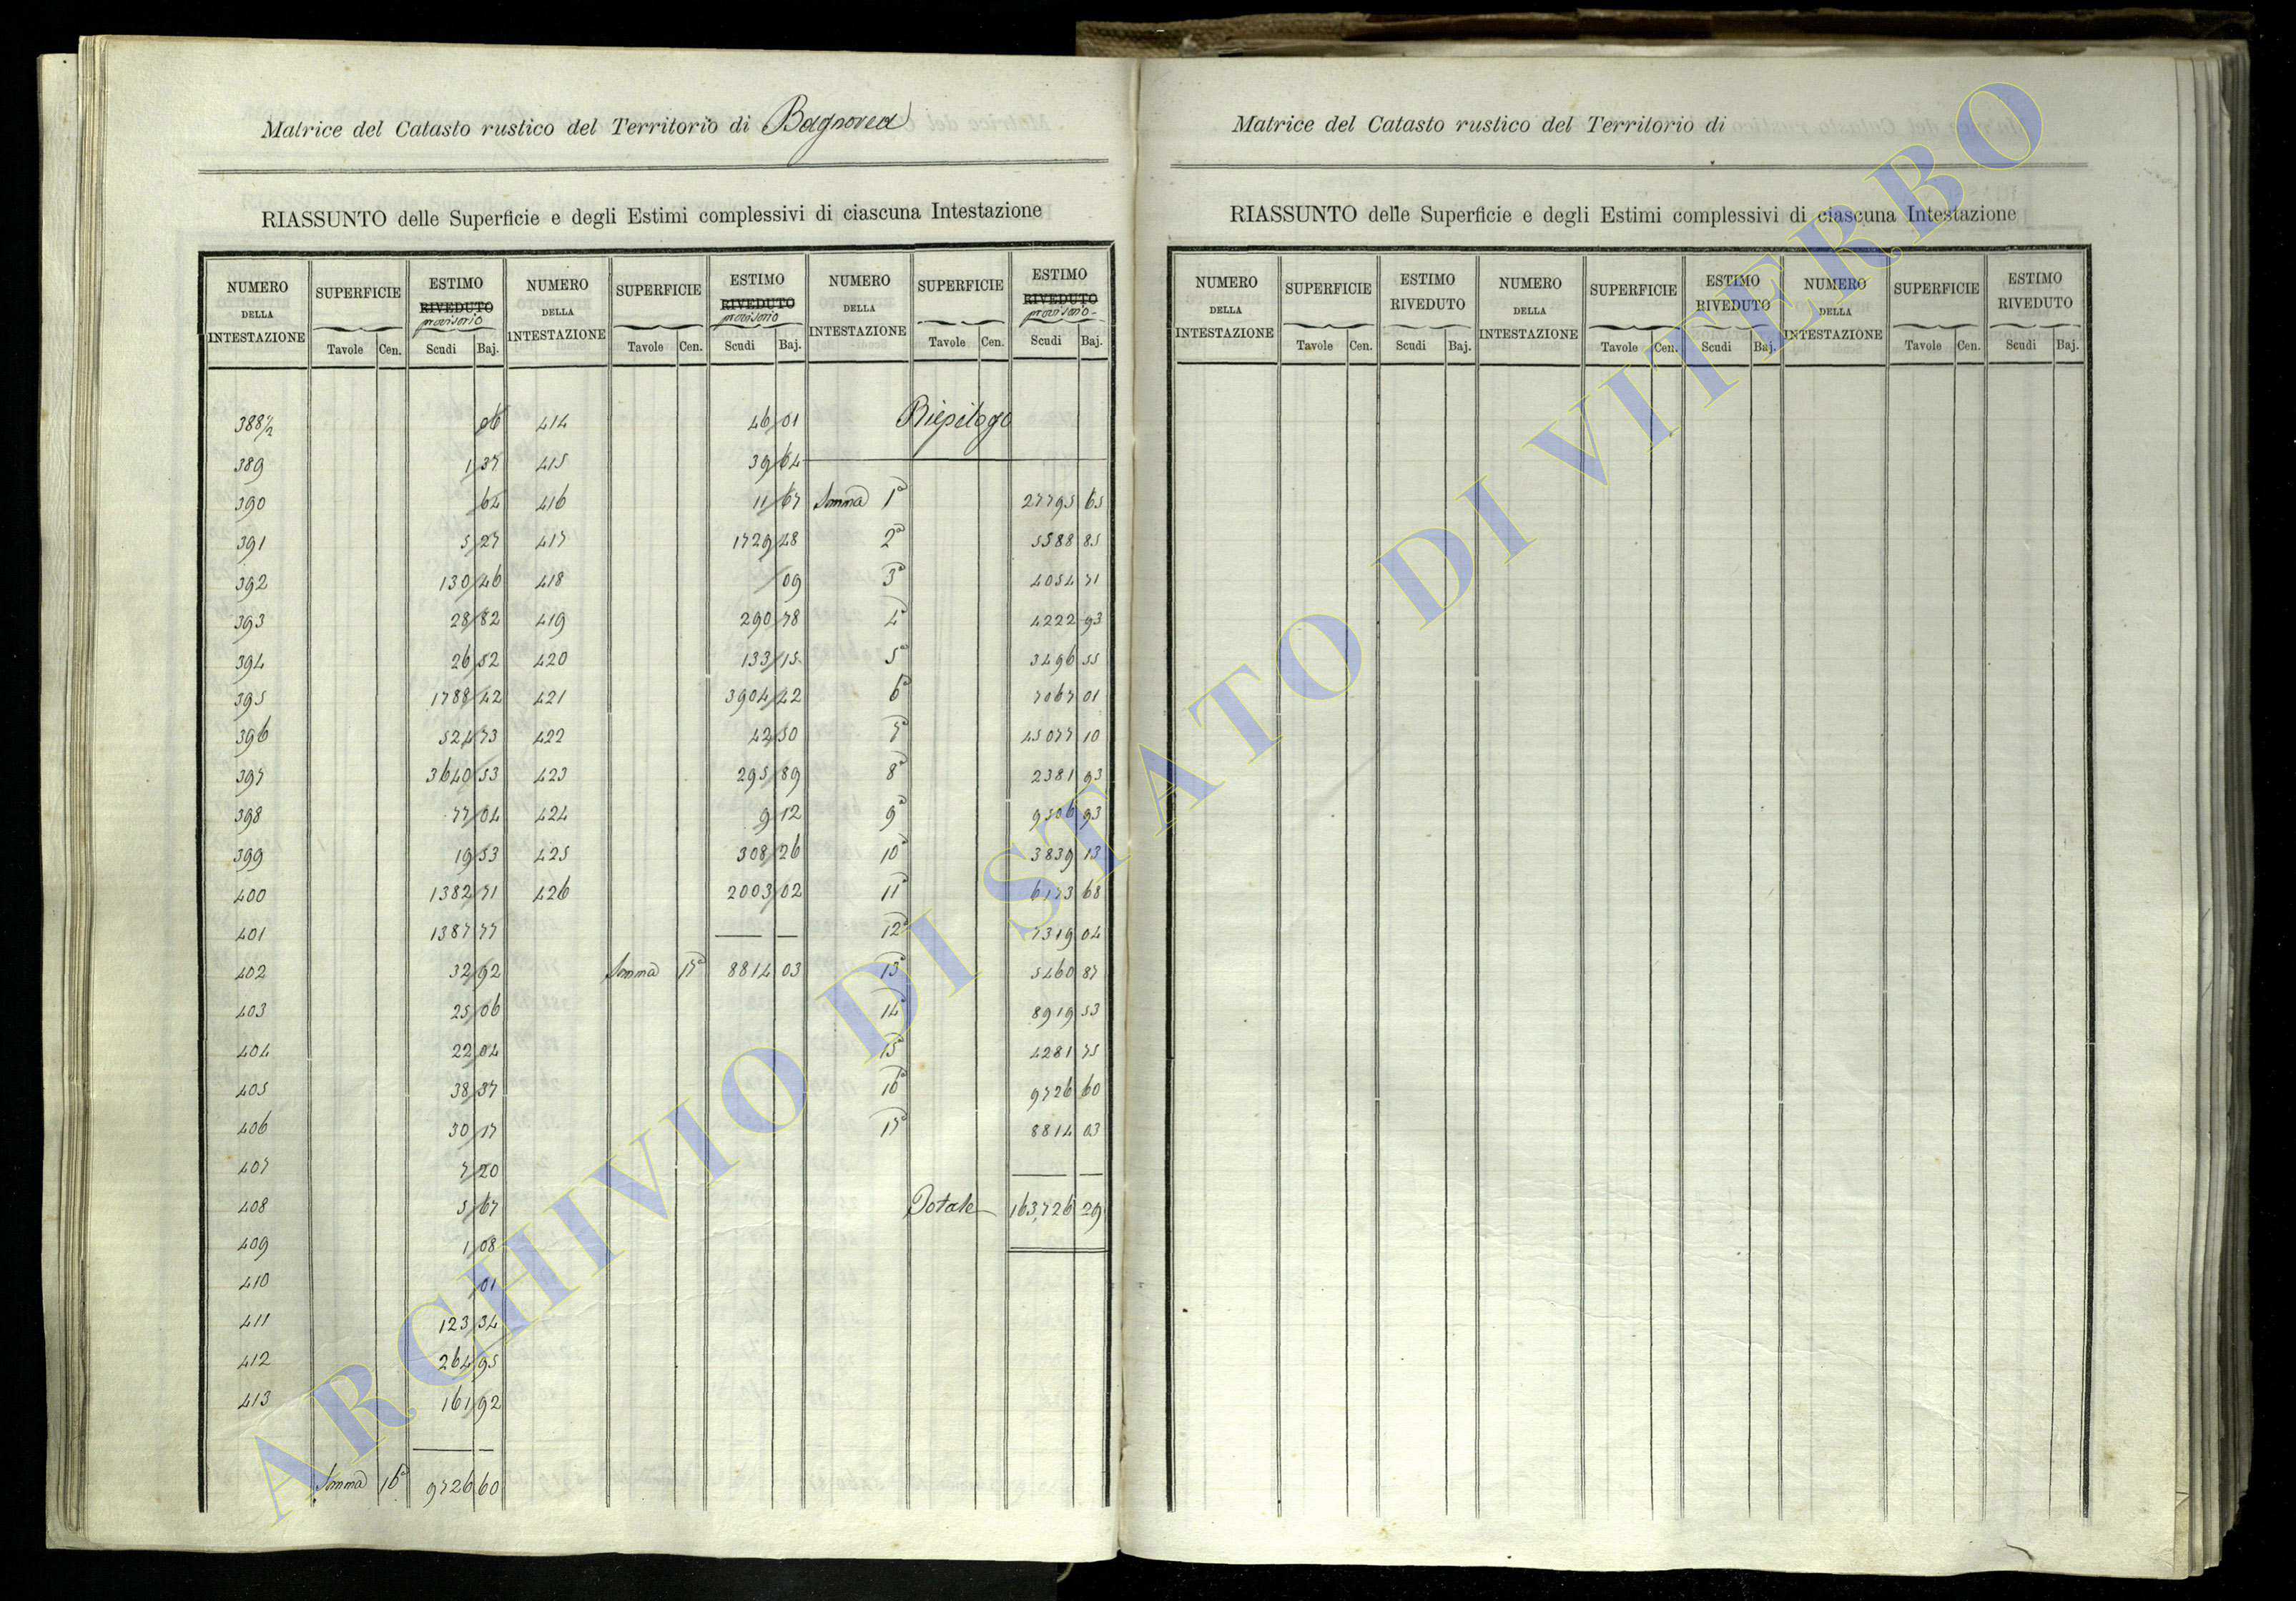 Matrice del Catasto rustico del Territorio di Bagnorea
RIASSUNTO delle Superficie e degli Estimi complessivi di ciascuna Intestazione
NUMERO DELLA INTESTAZIONE SUPERFICIE ESTIMO RIVEDUTO provisorio NUMERO DELLA INTESTAZIONE SUPERFICIE ESTIMO RIVEDUTO provisorio NUMERO DELLA INTESTAZIONE SUPERFICIE ESTIMO RIVEDUTO provisorio
Tavole Cen. Scudi Baj. Tavole Cen. Scudi Baj. Tavole Cen. Scudi Baj.
388 1/2 06 414 46 01 Riepilogo
389 1 37 415 39 64
390 64 416 11 67 Somma 1a 27795 65
391 5 27 417 1729 48 2a 5588 85
392 130 46 418 09 3a 4054 71
393 28 82 419 290 78 4a 4222 93
394 26 52 420 133 15 5a 3496 55
395 1788 42 421 3904 42 6a 7067 01
396 524 73 422 42 50 7a 45077 10
397 3640 53 423 295 89 8a 2381 93
398 77 04 424 9 12 9a 9506 93
399 19 53 425 308 26 10a 3839 13
400 1382 71 426 2003 02 11a 6173 68
401 1387 77 12a 7319 04
402 32 92 Somma 17a 8814 03 13a 5460 87
403 25 06 14a 8919 53
404 22 04 15a 4281 75
405 38 37 16a 9726 60
406 30 17 17a 8814 03
407 7 20
408 5 67 Totale 163,726 29
409 1 08
410 01
411 123 34
412 264 95
413 161 92
Somma 16a 9726 60
Matrice del Catasto rustico del Territorio di
RIASSUNTO delle Superficie e degli Estimi complessivi di ciascuna Intestazione
NUMERO DELLA INTESTAZIONE SUPERFICIE ESTIMO RIVEDUTO NUMERO DELLA INTESTAZIONE SUPERFICIE ESTIMO RIVEDUTO NUMERO DELLA INTESTAZIONE SUPERFICIE ESTIMO RIVEDUTO
Tavole Cen. Scudi Baj. Tavole Cen. Scudi Baj. Tavole Cen. Scudi Baj.
ARCHIVIO DI STATO DI VITERBO